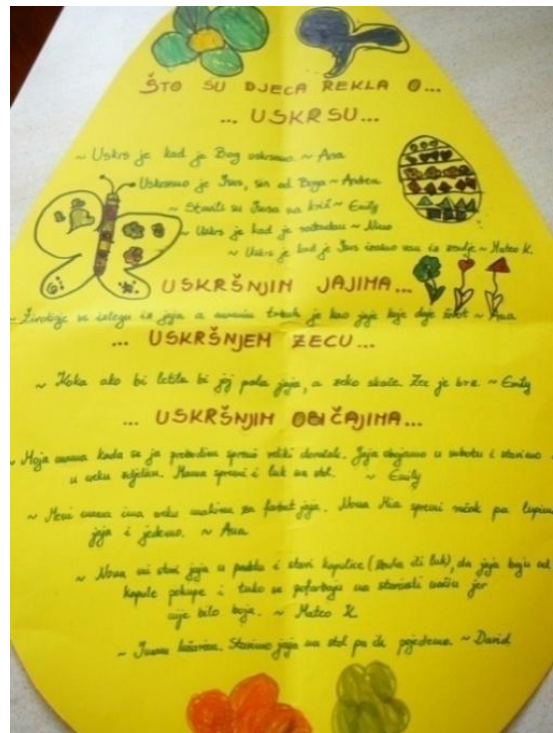 ŠTO SU DJECA REKLA O...
... USKRSU...
~ Uskrs je kad je Bog uskrsnuo. ~ Ana
~ Uskrsnuo je Isus, sin od Boga ~ Andrea
~ Stavili su Isusa na križ ~ Emily
~ Uskrs je kad je ~ Nino
~ Uskrs je kad je Isus izašao van iz zemlje ~ Mateo K.
USKRŠNJIM JAJIMA...
~ Životinje se izlegu iz jaja a mamin trbuh je kao jaje koje daje život ~ Ana
... USKRŠNJEM ZECU...
~ Koka ako bi letila bi joj pala jaja, a zeko skače. Zec je brz ~ Emily
... USKRŠNJIM OBIČAJIMA...
~ Moja mama kada se ja probudim spremi veliki doručak. Jaja obojamo u subotu i stavimo
u neku zdjelicu. Mama spremi i luk na stol. ~ Emily
~ Meni mama ima neku mašinu za farbat jaja. Nona Mia spremi ručak pa lupimo
jaja i jedemo. ~ Ana
~ Nona mi stavi jaja u padelu i stavi kapulice (žbula ili luk), da jaja boju od
kapule pokupe i tako se pofarbaju na starinski način jer
nije bilo boja. ~ Mateo K.
~ Imamo košaricu. Stavimo jaja na stol pa ih pojedemo. ~ David